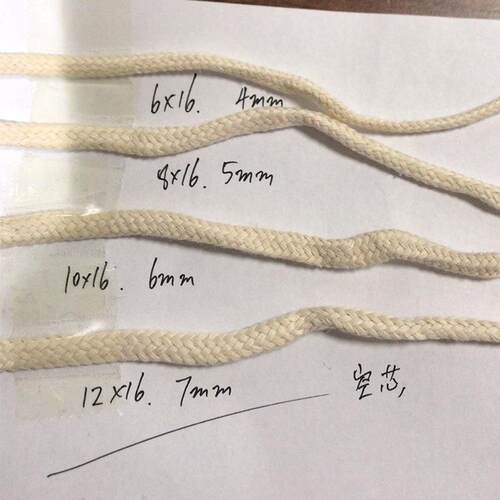 6x16. 4mm
8x16. 5mm
10x16. 6mm
12x16. 7mm
空芯,